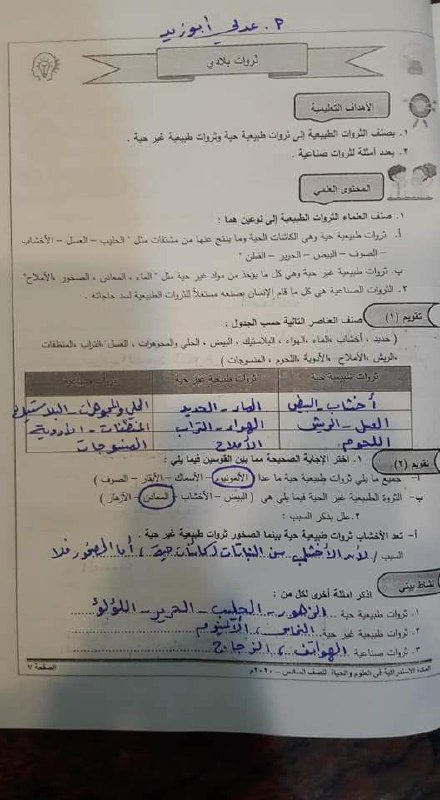 م. عدلي أبوزيد
ثروات بلادي
الأهداف التعليمية
١. يصنف الثروات الطبيعية إلى ثروات طبيعية حية وثروات طبيعية غير حية .
٢. يعدد أمثلة لثروات صناعية .
المحتوى العلمي
١. صنف العلماء الثروات الطبيعية إلى نوعين هما :
أ. ثروات طبيعية حية وهي الكائنات الحية وما ينتج عنها من مشتقات مثل " الحليب – العسل – الأخشاب
– الصوف – البيض – الحرير – القطن "
ب. ثروات طبيعية غير حية وهي كل ما يؤخذ من مواد غير حية مثل " الماء ، المعادن ، الصخور ،الأملاح"
٢. الثروات الصناعية هي كل ما قام الإنسان بصنعه مستغلاً الثروات الطبيعية لسد حاجاته .
تقويم (١) صنف العناصر التالية حسب الجدول :
( حديد ، أخشاب ،الماء ،الهواء ، البلاستيك ، البيض ، الحلي والمجوهرات ، العسل ،التراب ،المنظفات
،الريش ،الأملاح ،الأدوية ،اللحوم ، المنسوجات )
ثروات طبيعية حية ثروات طبيعية غير حية ثروات صناعية
أخشاب – البيض الماء – الحديد الحلي والمجوهرات – البلاستيك
العسل – الريش الهواء – التراب المنظفات – الأدوية
اللحوم الأملاح المنسوجات
تقويم (٢) ١. اختر الإجابة الصحيحة مما بين القوسين فيما يلي :
أ- جميع ما يلي ثروات طبيعية حية ما عدا ( الألمونيوم – الأسماك – الأبقار – الصوف )
ب- الثروة الطبيعية غير الحية فيما يلي هي ( البيض – الأخشاب – المعادن – الأزهار )
٢. علل بذكر السبب :
أ- تعد الأخشاب ثروات طبيعية حية بينما الصخور ثروات طبيعية غير حية .
السبب / لأن الأخشاب من النباتات (كائنات حية) ، أما الصخور فلا
نشاط بيتي اذكر امثلة أخرى لكل من :
١. ثروات طبيعية حية .. الزهور – الحليب – الحرير – اللؤلؤ
٢. ثروات طبيعية غير حية. النحاس ، الألمنيوم
٣. ثروات صناعية .. الهواتف ، الزجاج
المادة الاستدراكية في العلوم والحياة للصف السادس – ٢٠٢٠م الصفحة ٧